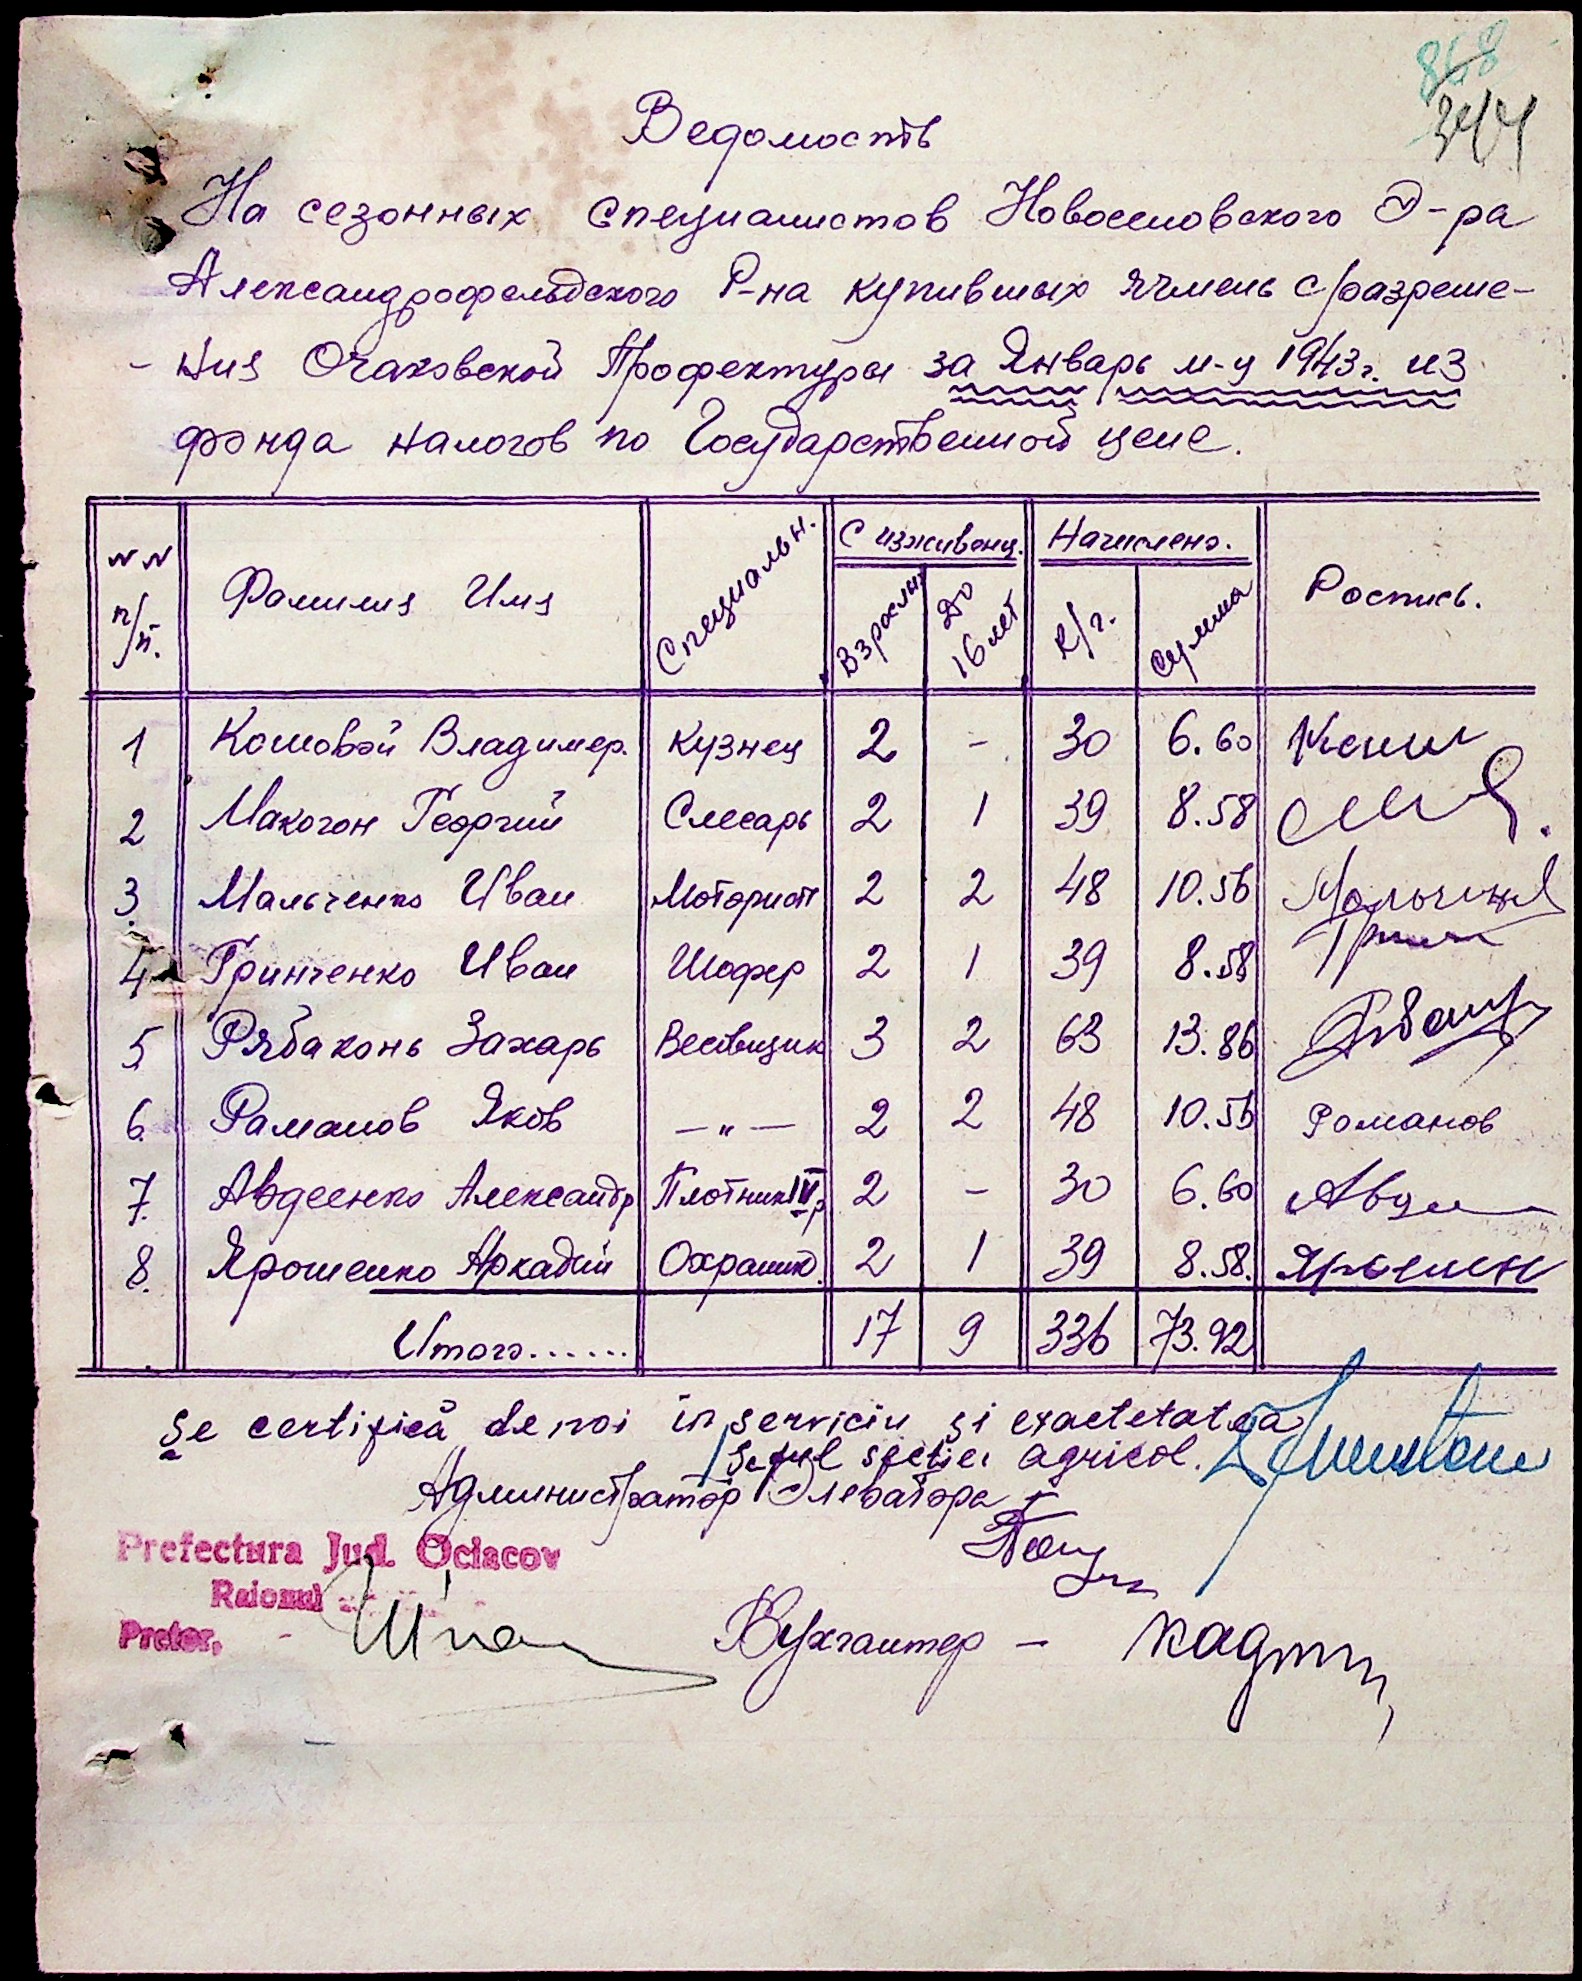 868
344
Ведомость
На сезонных специалистов Новоселовского Э-ра
Александрофельдского Р-на купивших ячмень с/разреше-
- ния Очаковской Профектуры за Январь м-ц 1943г. из
фонда налогов по Государственной цене.
NN п/п. Фамилия Имя Специальн. С иживенц. Взрослых До 16 лет Начислено. К/г. Сумма Роспись.
1 Кошовой Владимер. Кузнец 2 - 30 6.60 Кош
2 Макогон Георгий Слесарь 2 1 39 8.58
3. Мальченко Иван Моторист 2 2 48 10.56
4 Гринченко Иван Шофер 2 1 39 8.58 Грин
5 Рябаконь Захарь Вестовщик 3 2 63 13.86
6. Раманов Яков —"— 2 2 48 10.56 Романов
7. Авдеенко Александр Плотник IV р 2 - 30 6.60 Авде
8. Ярошенко Аркадий Охранник. 2 1 39 8.58. Ярошен
Итого...... 17 9 336 73.92
Se certifică de noi în serviciu și exactetatea
Șeful secției agricol.
Администратор Элеватора
Prefectura Jud. Ociacov
Raionul
Pretor,
Бухгалтер -